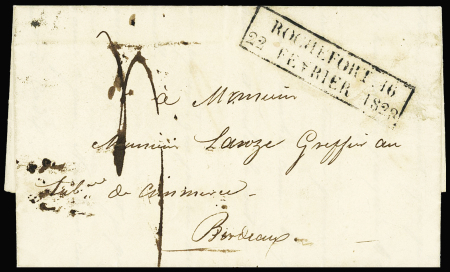 ROCHEFORT. 16
22 FÉVRIER 1828
à Monsieur
Monsieur Laroze Greffier au
de commerce
Bordeaux